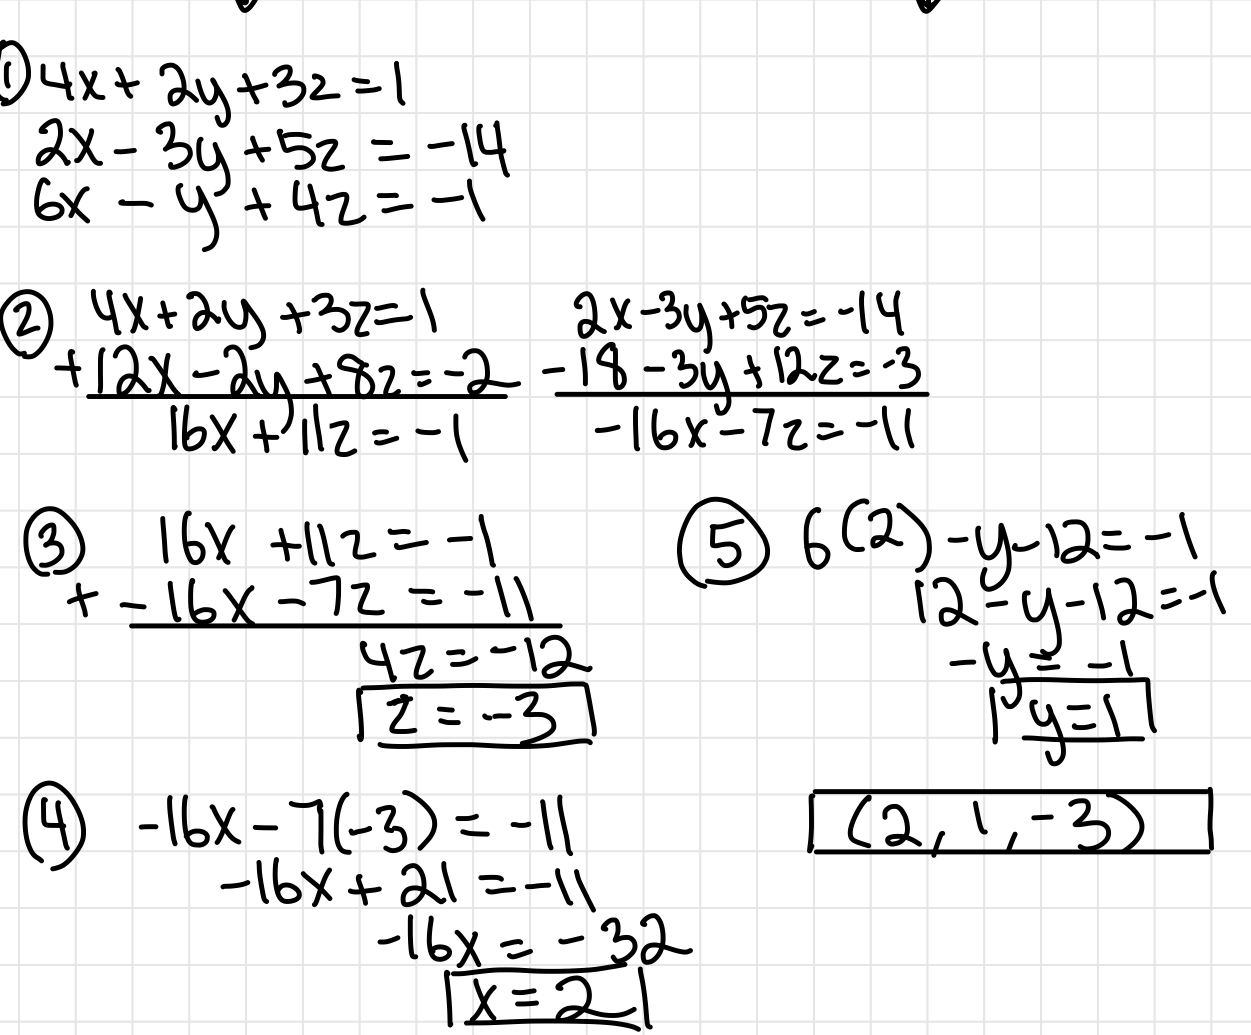 ① 4x + 2y + 3z = 1
2x - 3y + 5z = -14
6x - y + 4z = -1
② 4x + 2y + 3z = 1
+ 12x - 2y + 8z = -2
16x + 11z = -1
2x - 3y + 5z = -14
- 18 - 3y + 12z = -3
-16x - 7z = -11
③ 16x + 11z = -1
+ -16x - 7z = -11
4z = -12
z = -3
④ -16x - 7(-3) = -11
-16x + 21 = -11
-16x = -32
x = 2
⑤ 6(2) - y - 12 = -1
12 - y - 12 = -1
-y = -1
y = 1
(2, 1, -3)